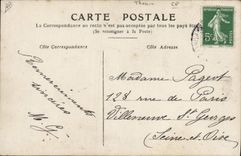 CARTE POSTALE
La Correspondance au recto n'est pas acceptée par tous les pays étrangers
(Se renseigner à la Poste)
Côté Correspondance
Côté Adresse
Remerciements
sincères
Madame Pagent
128 rue de Paris
Villeneuve St Georges
(Seine et Oise)